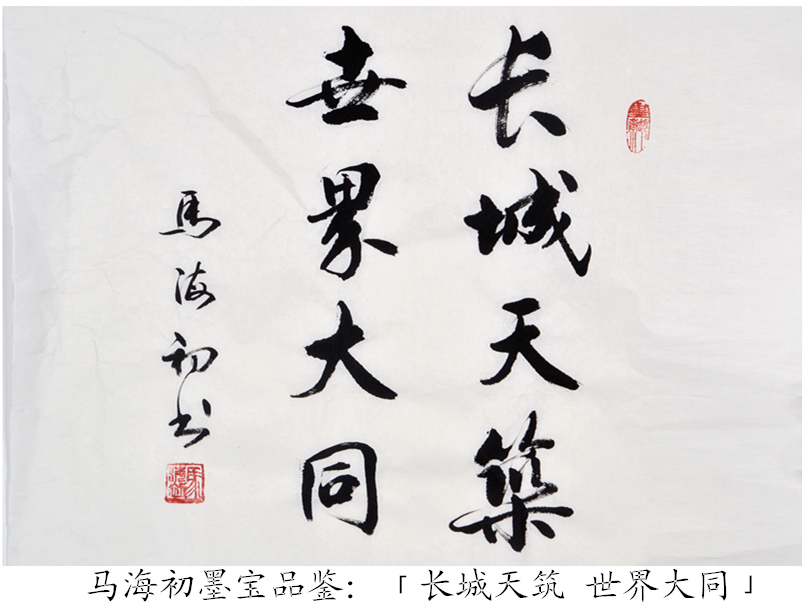 长城天築
世界大同
馬海初书
马海初墨宝品鉴：「长城天筑 世界大同」